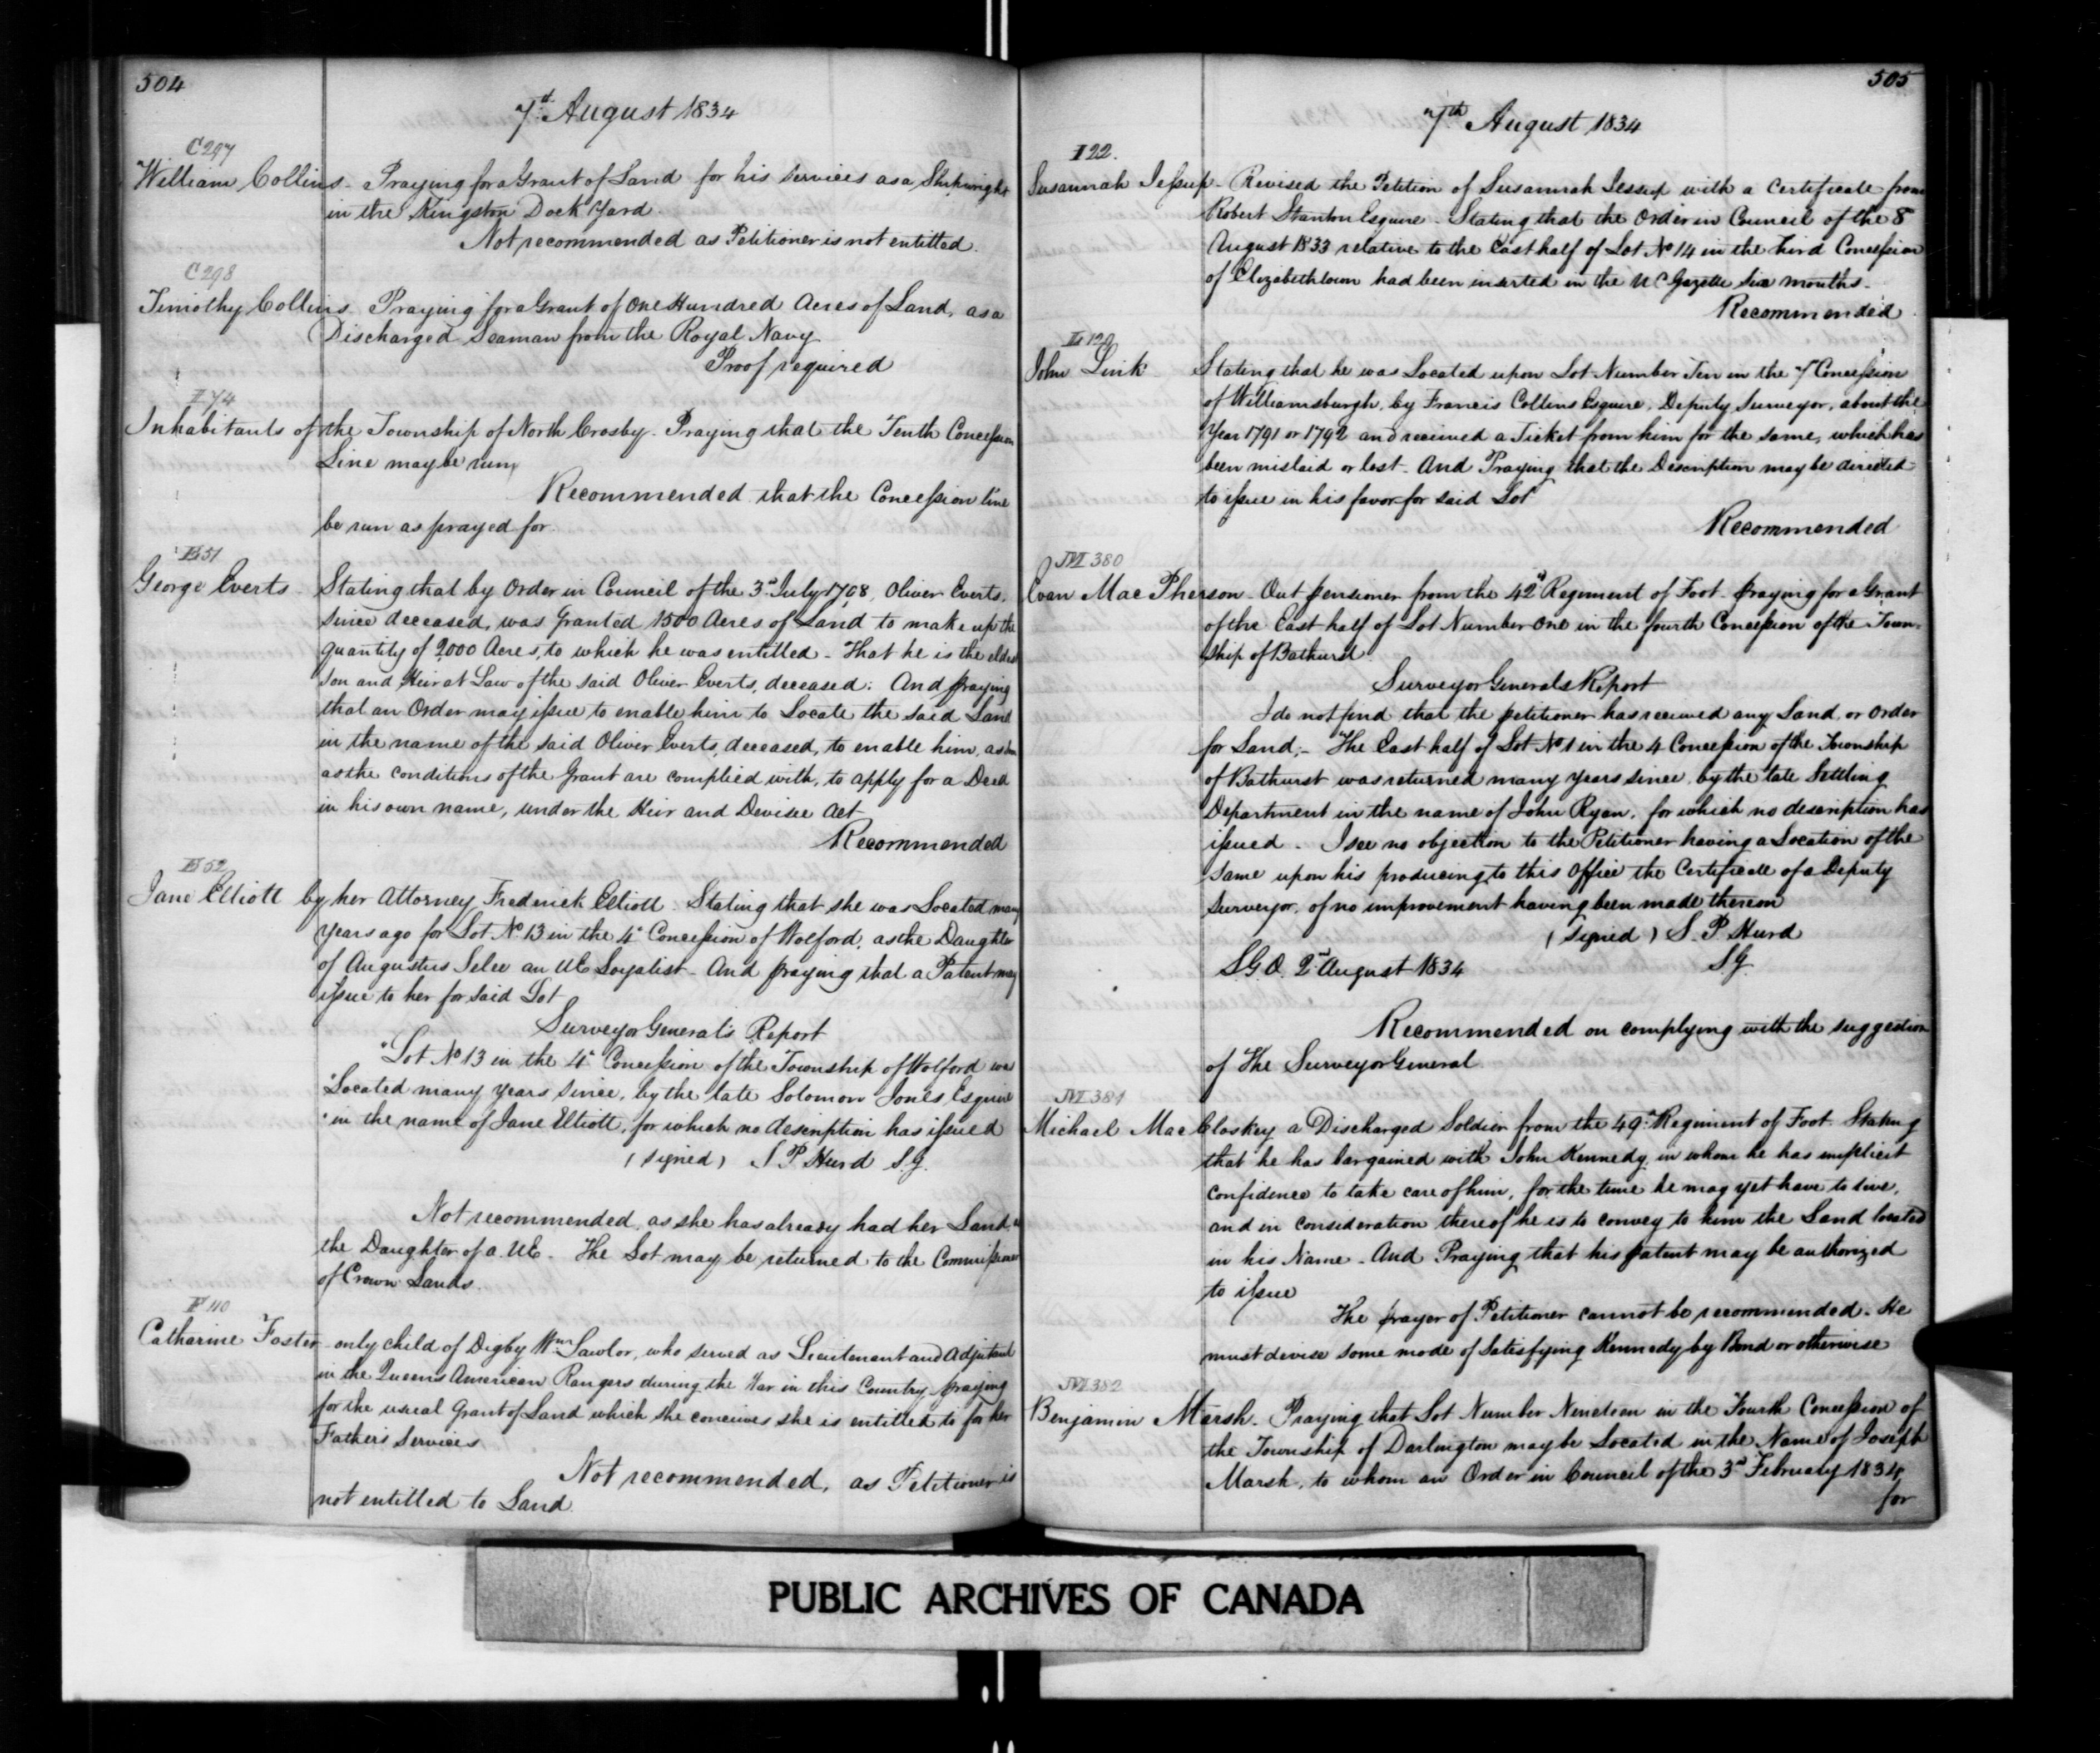 504
7th August 1834
C 297
William Collins - Praying for a Grant of Land for his services as a Shipwright
in the Kingston Dock Yard.
Not recommended as Petitioner is not entitled.
C 298
Timothy Collins - Praying for a Grant of One Hundred Acres of Land, as a
Discharged Seaman from the Royal Navy
Proof required
I 74
Inhabitants of the Township of North Crosby. Praying that the Tenth Concession
Line may be run,
Recommended that the Concession line
be run as prayed for.
E 51
George Everts - Stating that by Order in Council of the 3d July 1708, Oliver Everts,
since deceased, was Granted 1500 Acres of Land to make up the
quantity of 2000 Acres, to which he was entitled - That he is the eldest
son and Heir at Law of the said Oliver Everts, deceased: And praying
that an Order may issue to enable him to Locate the said Land
in the name of the said Oliver Everts, deceased, to enable him, as soon
as the conditions of the Grant are complied with, to apply for a Deed
in his own name, under the Heir and Devisee Act
Recommended
E 52
Jane Elliott by her Attorney Frederick Elliott. Stating that she was Located many
Years ago for Lot No 13 in the 4th Concession of Wolford, as the Daughter
of Augustus Selee an UE Loyalist - And praying that a Patent may
issue to her for said Lot
Surveyor General's Report
"Lot No 13 in the 4th Concession of the Township of Wolford was
"Located many years since, by the late Solomon Jones Esquire
"in the name of Jane Elliott, for which no description has issued
(signed) S P Hurd S.G.
Not recommended, as she has already had her Land as
the Daughter of a UE - The Lot may be returned to the Commissioner
of Crown Lands.
F 110
Catharine Foster - only child of Digby Wm Lawlor, who served as Lieutenant and Adjutant
in the Queens American Rangers during the War in this Country praying
for the usual Grant of Land which she conceives she is entitled to for her
Father's services
Not recommended, as Petitioner is
not entitled to Land
505
7th August 1834
I 22.
Susannah Jessup - Revised the Petition of Susannah Jessup with a Certificate from
Robert Stanton Esquire - Stating that the Order in Council of the 8
August 1833 relative to the East half of Lot No 14 in the third Concession
of Elizabethtown had been inserted in the UC Gazette six months -
Recommended
L 129
John Link Stating that he was Located upon Lot Number Ten in the 7 Concession
of Williamsburgh, by Francis Collins Esquire, Deputy Surveyor, about the
Year 1791 or 1792 and received a Ticket from him for the same, which has
been mislaid or lost - And Praying that the Description may be directed
to issue in his favor for said Lot
Recommended
M 380
Evan Mac Pherson - Out pensioner from the 42d Regiment of Foot praying for a Grant
of the East half of Lot Number One in the fourth Concession of the Town-
ship of Bathurst
Surveyor Generals Report
I do not find that the petitioner has received any Land, or order
for Land; - The East half of Lot No 1 in the 4 Concession of the Township
of Bathurst was returned many years since, by the late Settling
Department in the name of John Ryan, for which no description has
issued - I see no objection to the Petitioner having a Location of the
same upon his producing to this Office the Certificate of a Deputy
Surveyor, of no improvement having been made thereon
(signed) S. P Hurd
S.G.O. 2d August 1834 S.G.
Recommended on complying with the suggestion
of The Surveyor General
M 381
Michael Mac Closkey a Discharged Soldier from the 49th Regiment of Foot - Stating
that he has bargained with John Kennedy, in whom he has implicit
confidence to take care of him, for the time he may yet have to live,
and in consideration thereof he is to convey to him the Land located
in his Name - And Praying that his patent may be authorized
to issue
The prayer of Petitioner cannot be recommended - He
must devise some mode of Satisfying Kennedy by Bond or otherwise
M 382
Benjamin Marsh - Praying that Lot Number Nineteen in the Fourth Concession of
the Township of Darlington may be Located in the Name of Joseph
Marsh, to whom an Order in Council of the 3d February 1834,
for
PUBLIC ARCHIVES OF CANADA